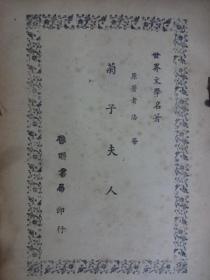 世界文學名著
原著者洛蒂
菊子夫人
啓明書局印行